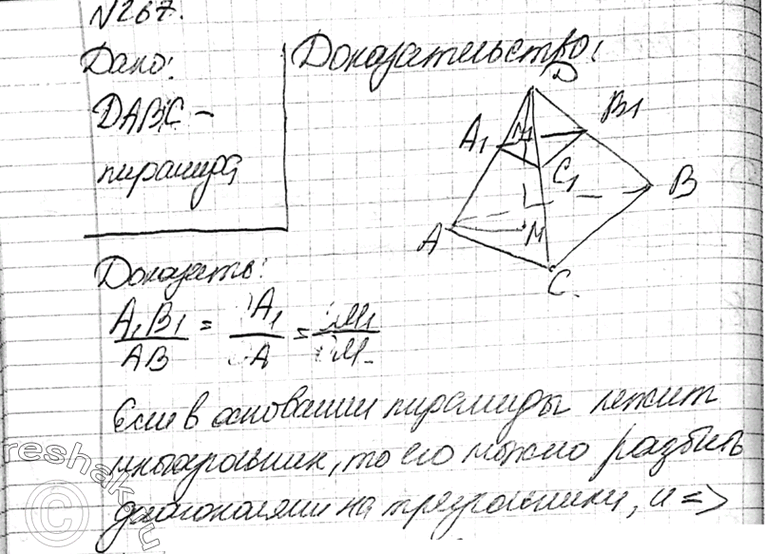 №267.
Дано:
Доказательство:
DABC –
пирамида
D
A1
M1
B1
C1
A
M
B
C
Доказать:
A1B1/AB = DA1/DA = DM1/DM
Если в основании пирамиды лежит
многоугольник, то его можно разбить
диагоналями на треугольники, и =>
reshak.ru
©